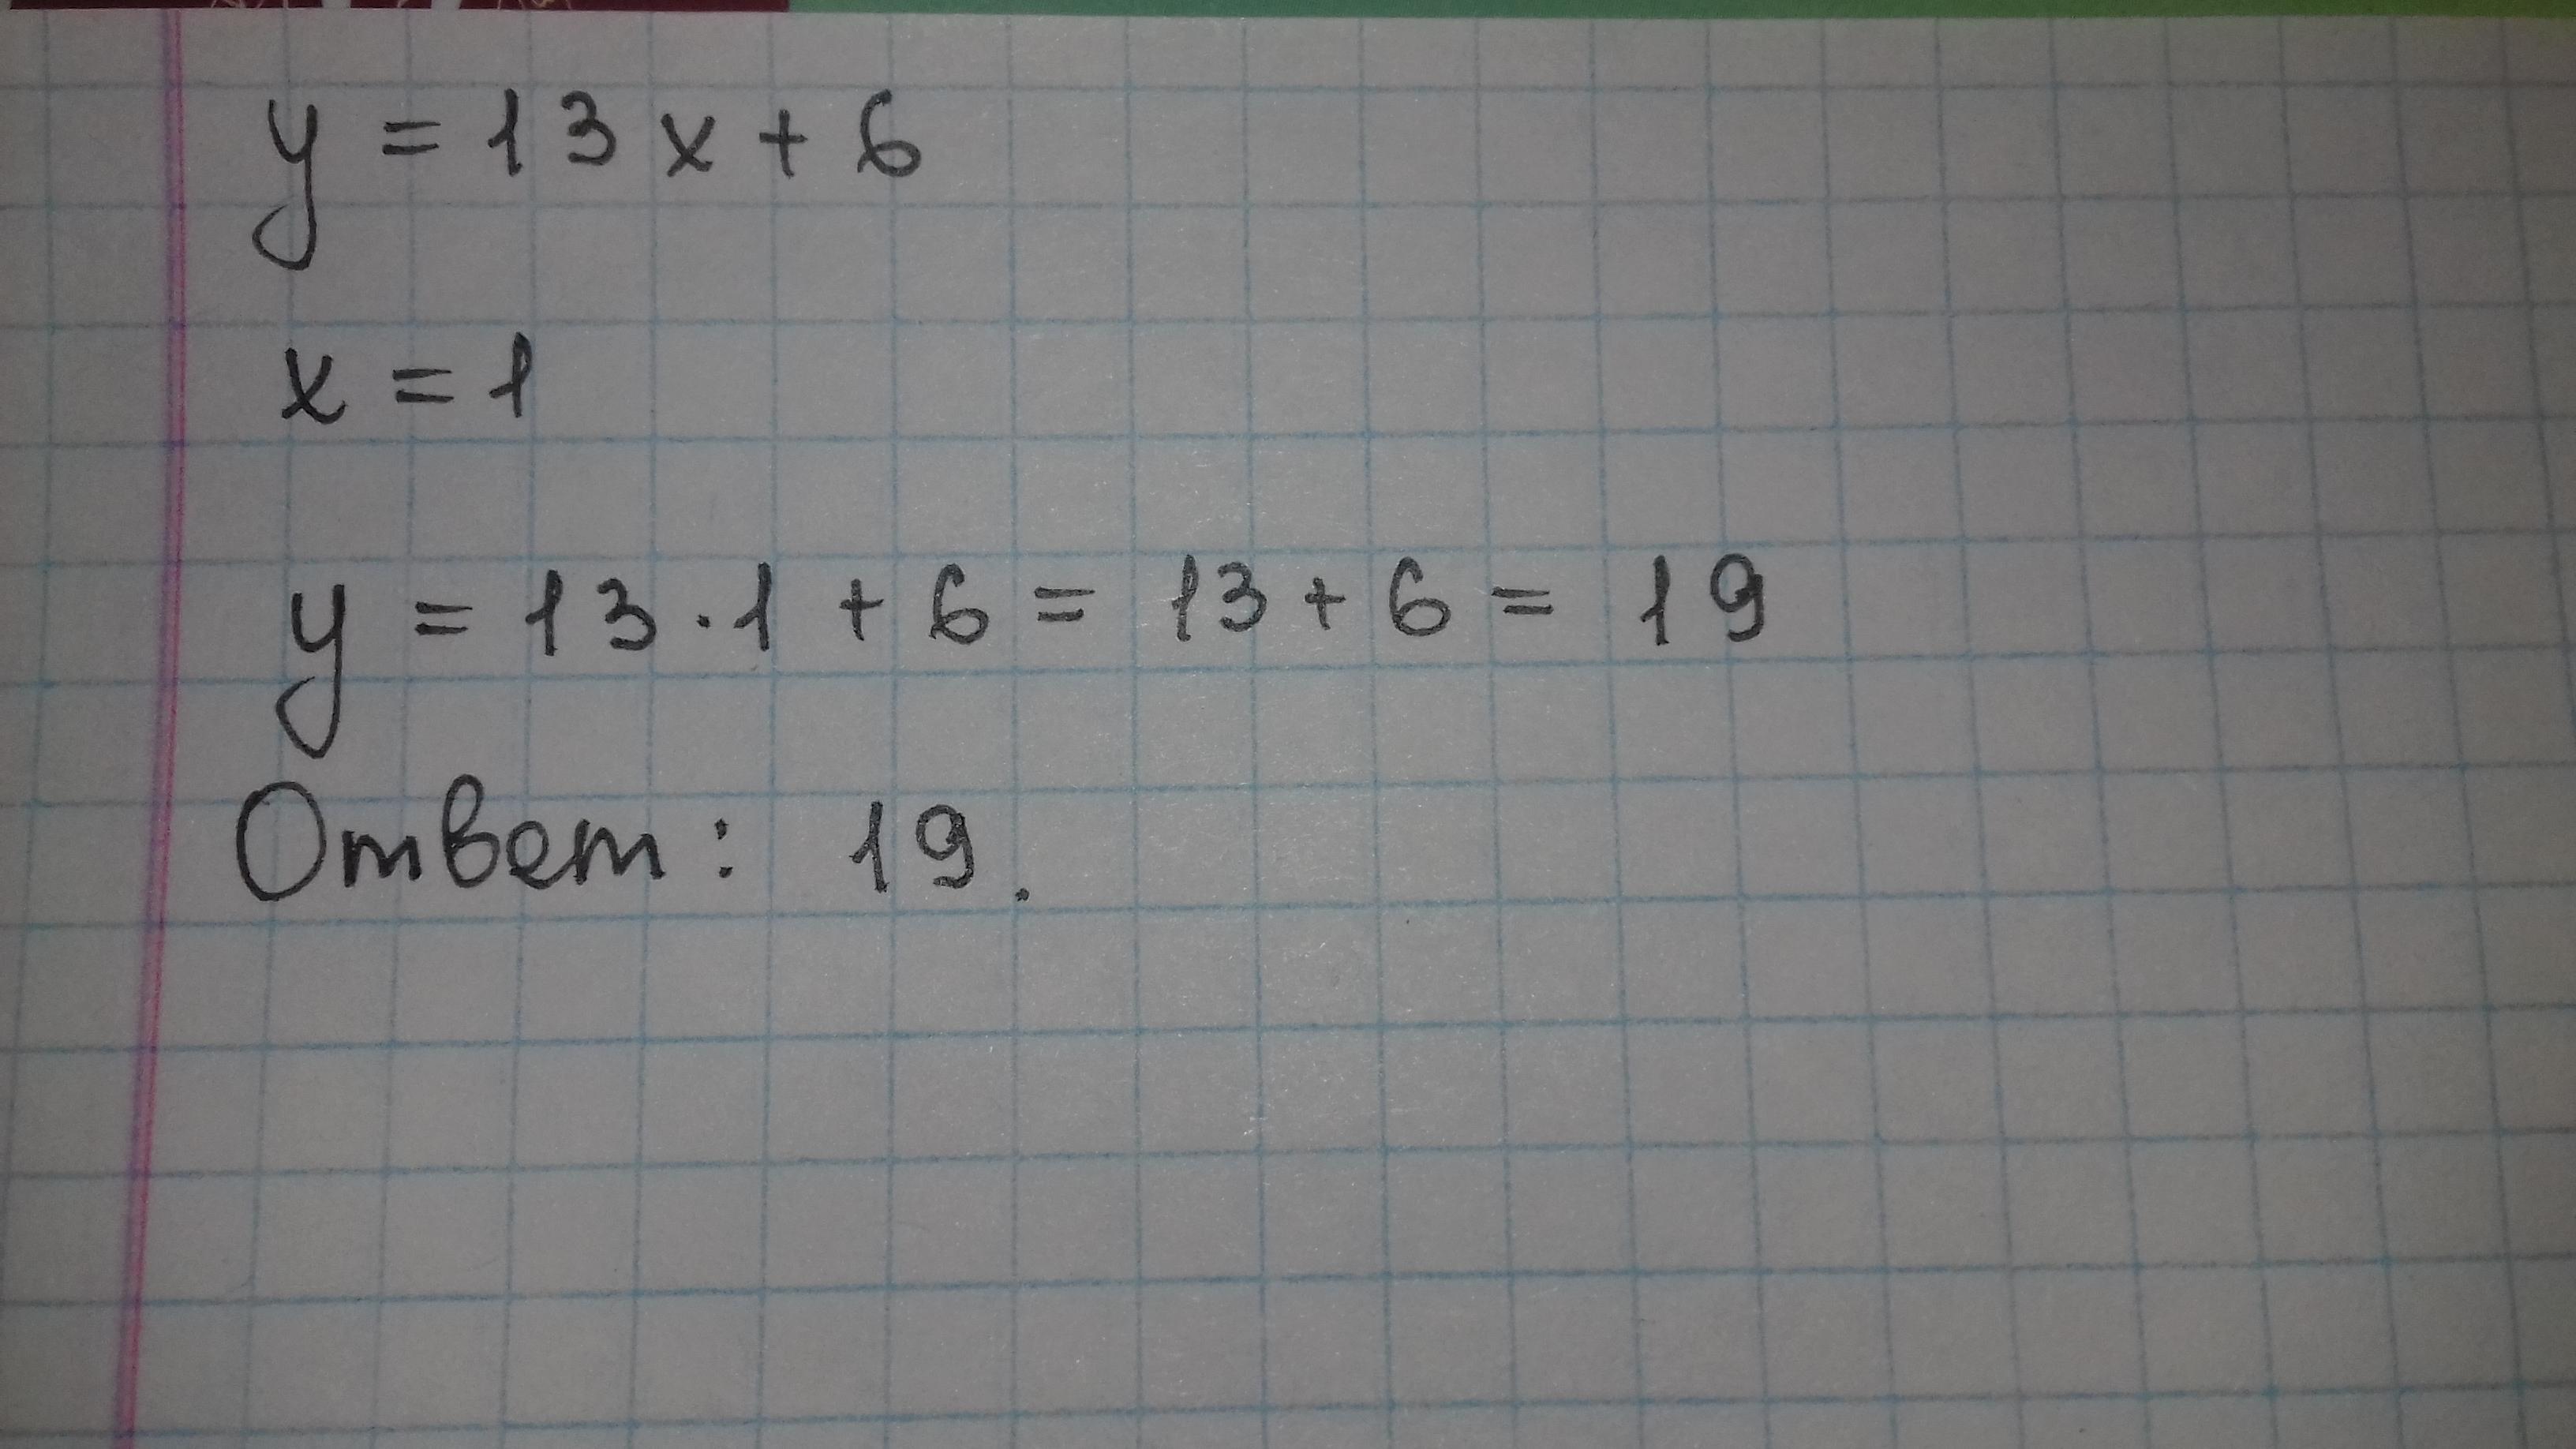 y = 13x + 6
x = 1
y = 13 · 1 + 6 = 13 + 6 = 19
Ответ: 19.